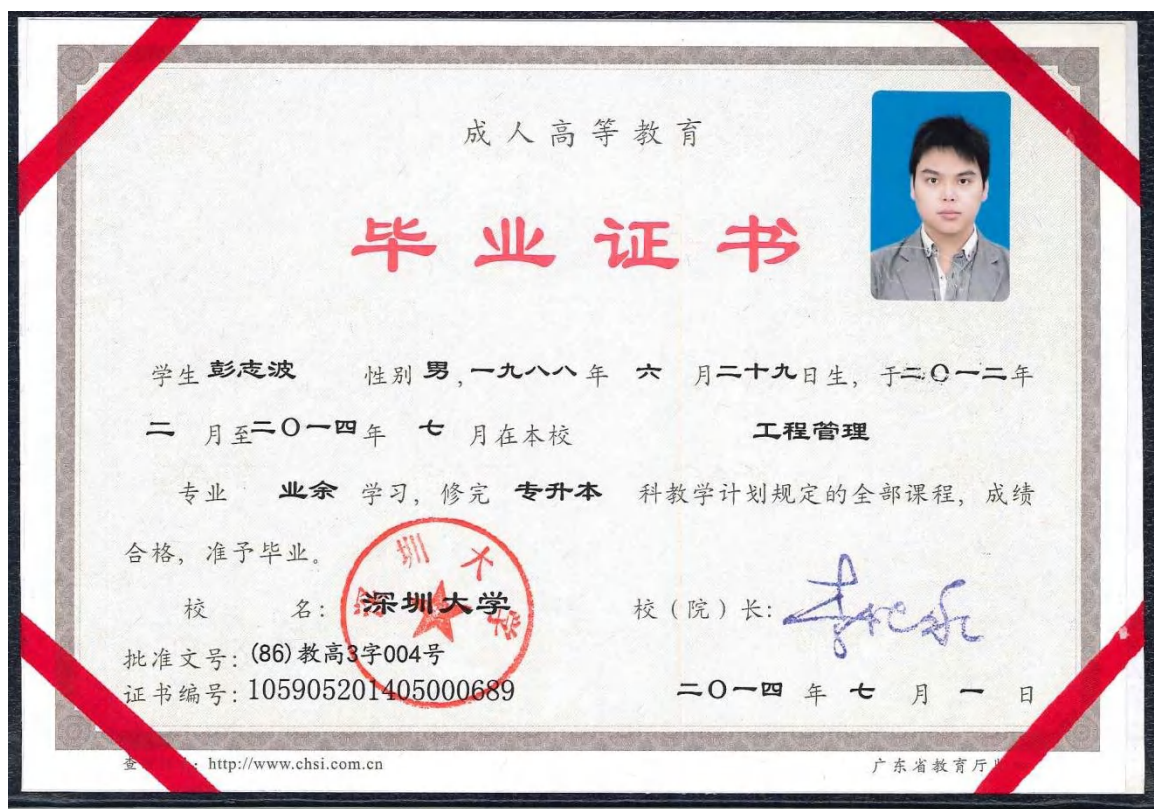 成人高等教育
毕业证书
学生 彭志波 性别 男,一九八八年 六 月二十九日生, 于二〇一二年
二 月至二〇一四年 七 月在本校 工程管理
专业 业余 学习, 修完 专升本 科教学计划规定的全部课程, 成绩
合格, 准予毕业。
深圳大学
校 名: 深圳大学 校(院)长:
批准文号: (86)教高3字004号
证书编号: 105905201405000689 二〇一四 年 七 月 一 日
查 : http://www.chsi.com.cn 广东省教育厅